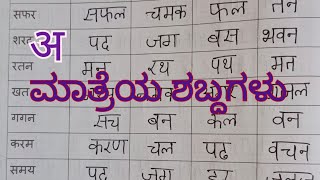 सफर सफल चमक फल तन
शरत पद जग बस भवन
अ
रतन मन रथ पथ मत
ಮಾತ್ರೆಯ ಶಬ್ದಗಳು
गगन सच बन कल वन
करम करण चल पढ वचन
समय पद जग